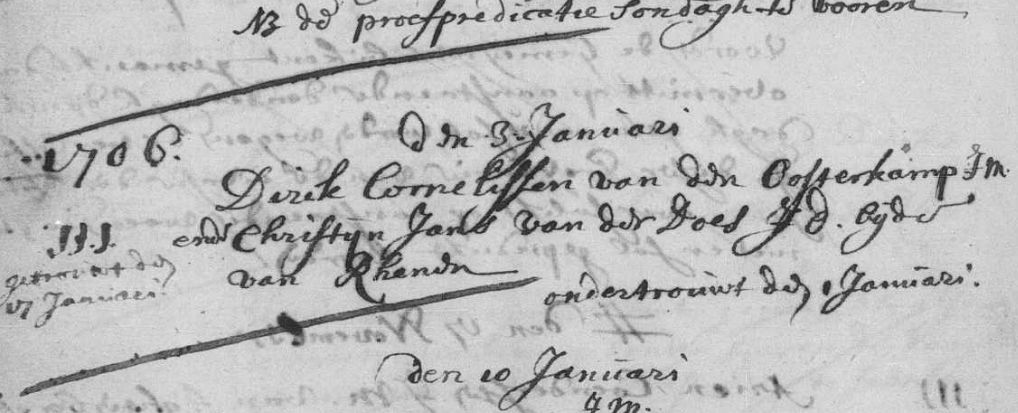 NB de proefpredicatie Sondagh te vooren
1706. den 3 Januari
Dirck Cornelissen van den Oosterkamp J m.
III. ende Christijn Jans van der Does J d. beijde
getrouwt den
17 Januari.
van Rhenen
ondertrouwt den 1 Januari.
den 10 Januari
J m.